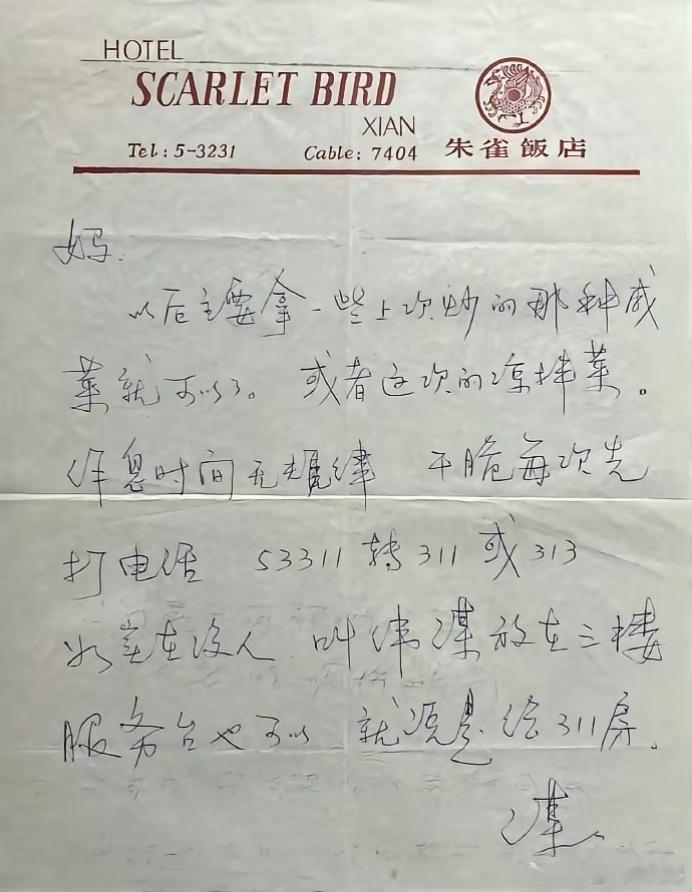 HOTEL
SCARLET BIRD
XIAN
Tel: 5-3231 Cable: 7404 朱雀飯店
妈.
以后主要拿一些上次炒的那种咸
菜就可以了。或者这次的凉拌菜。
作息时间无规律 干脆每次先
打电话 53311 转 311 或 313
如实在没人 叫伟谋放在三楼
服务台也可以 就说是给311房.
谋